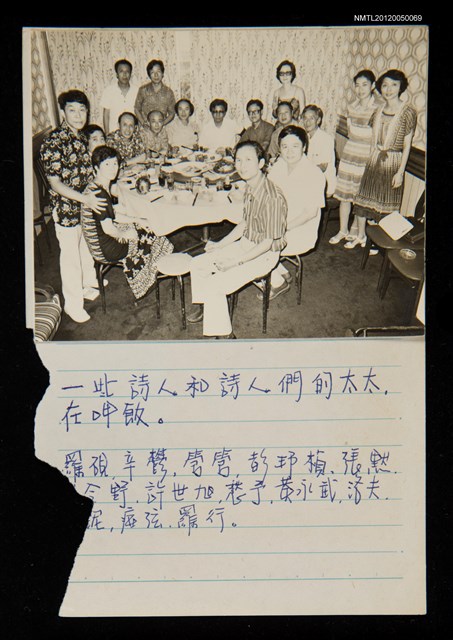 NMTL20120050069
一些詩人和詩人們的太太,
在呷飯。
羅硯,辛鬱,管管,彭邦楨,張默.
今野,許世旭,楚予,黃永武,洛夫.
妮,瘂弦.羅行。